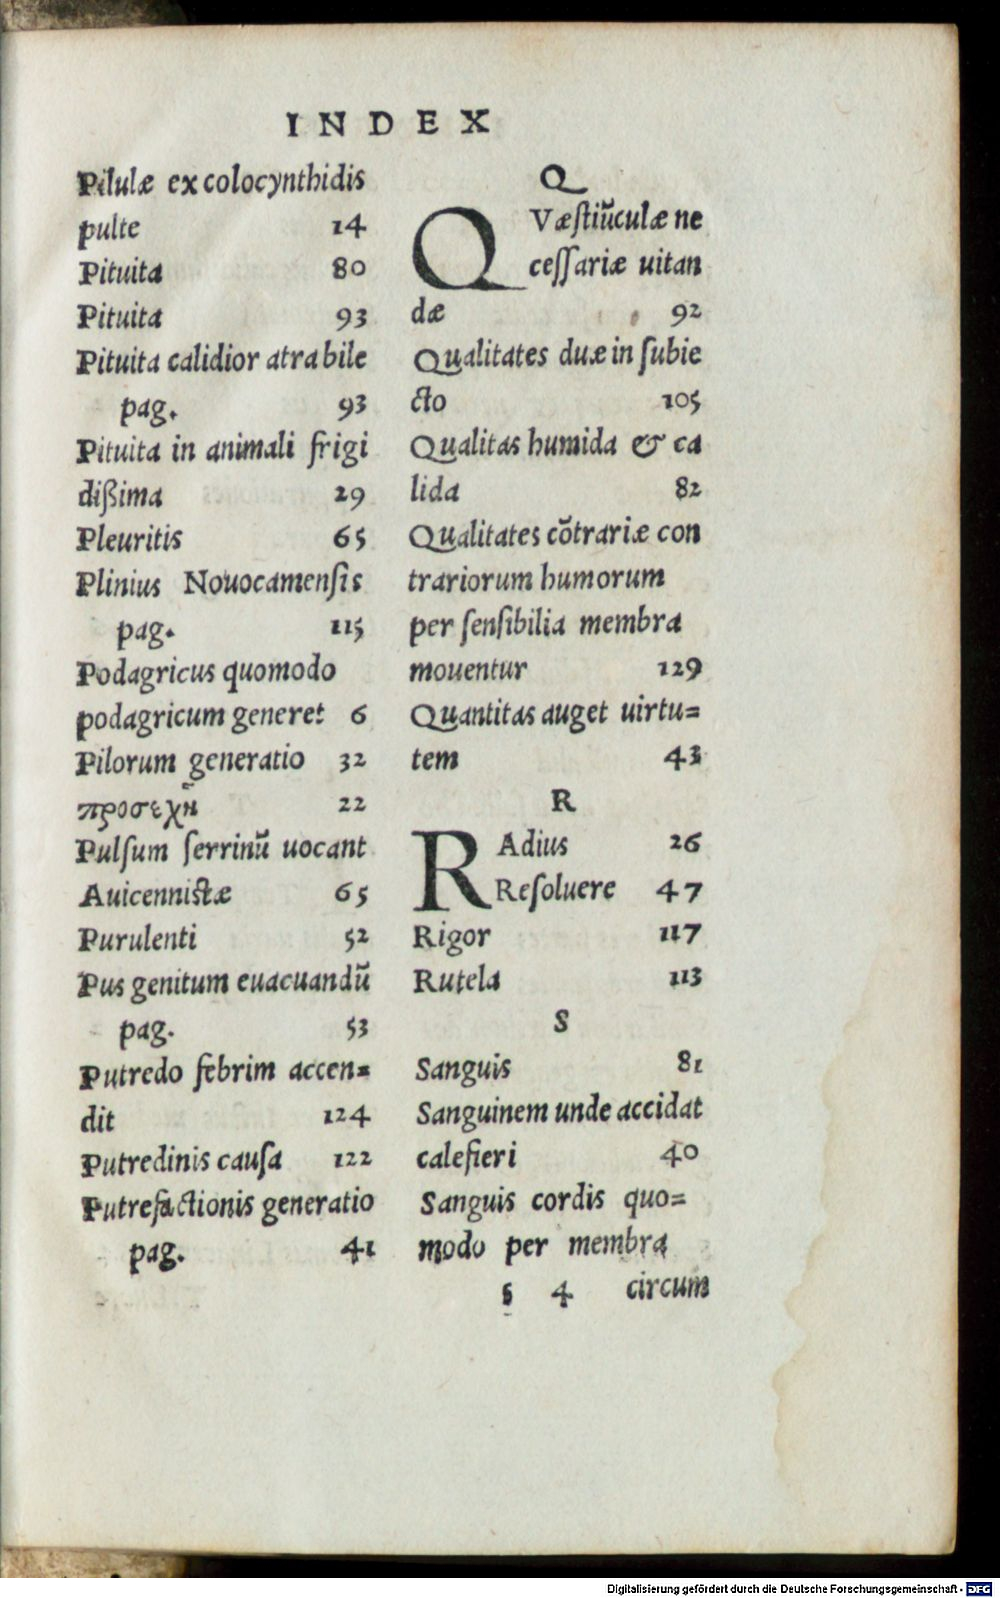 INDEX
Pilulæ ex colocynthidis
pulte 14
Pituita 80
Pituita 93
Pituita calidior atra bile
pag. 93
Pituita in animali frigi
dißima 29
Pleuritis 65
Plinius Nouocamenſis
pag. 115
Podagricus quomodo
podagricum generet 6
Pilorum generatio 32
προσεχῆ 22
Pulſum ſerrinū uocant
Auicennistæ 65
Purulenti 52
Pus genitum euacuandū
pag. 53
Putredo febrim accen-
dit 124
Putredinis cauſa 122
Putrefactionis generatio
pag. 41
Q
QVæſtiūculæ ne
ceſſariæ uitan
dæ 92
Qualitates duæ in ſubie
cto 105
Qualitas humida & ca
lida 82
Qualitates cōtrariæ con
trariorum humorum
per ſenſibilia membra
mouentur 129
Quantitas auget uirtu=
tem 43
R
RAdius 26
Reſoluere 47
Rigor 117
Rutela 113
S
Sanguis 81
Sanguinem unde accidat
calefieri 40
Sanguis cordis quo=
modo per membra
s 4 circum
Digitalisierung gefördert durch die Deutsche Forschungsgemeinschaft - DFG